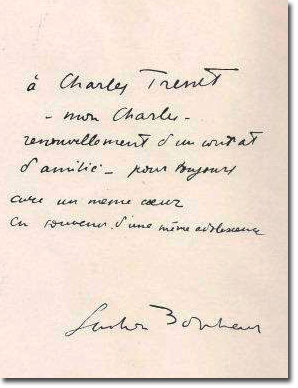 à Charles Trenet
- mon Charles -
renouvellement d'un contrat
d'amitié - pour toujours
avec un même cœur
en souvenir d'une même adolescence
Gaston Bonheur